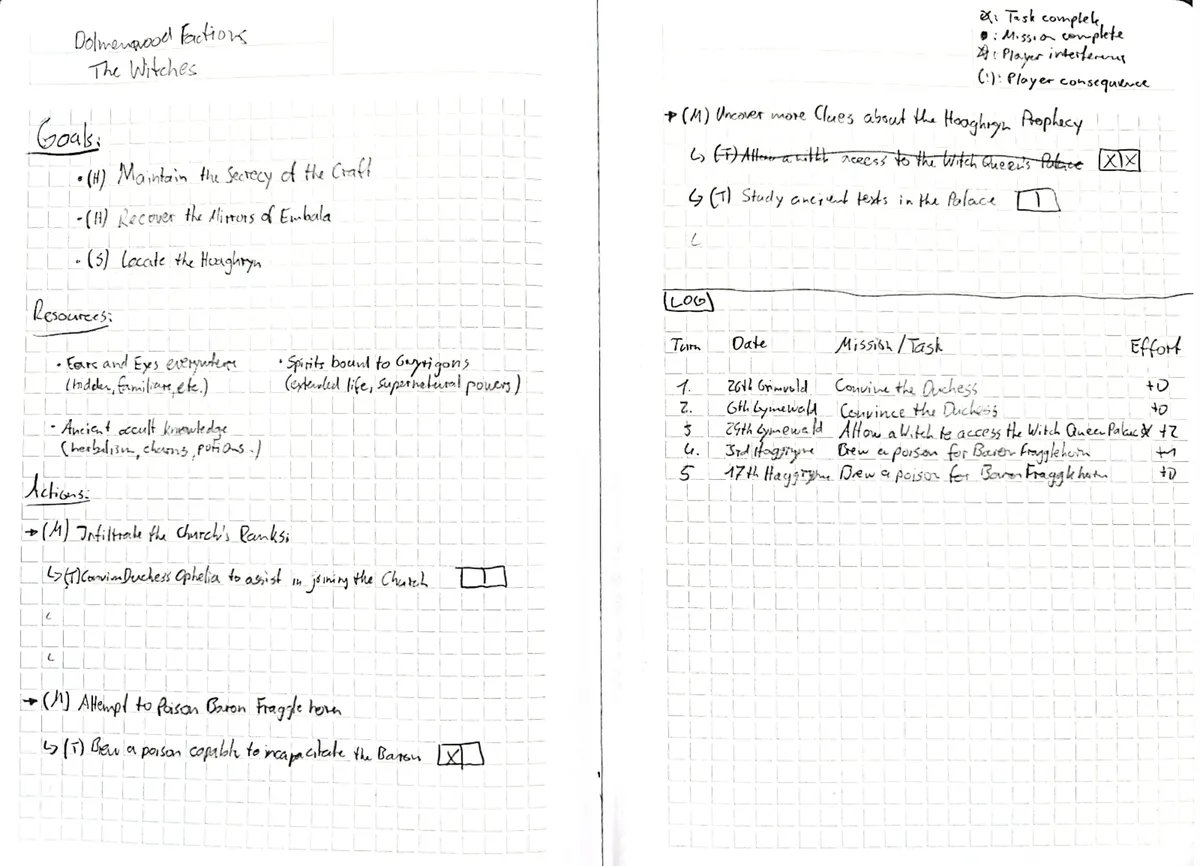 Dolmenwood Factions
The Witches
Goals:
• (H) Maintain the Secrecy of the Craft
- (H) Recover the Mirrors of Embala
- (S) Locate the Hooghryn
Resources:
• Ears and Eyes everywhere
(hidden, familiars, etc.)
• Spirits bound to Gwyrigons
(extended life, supernatural powers)
• Ancient occult knowledge
(herbalism, charms, potions.)
Actions:
→ (M) Infiltrate the Church's Ranks:
↳ (T) Duchess Ophelia to assist in joining the Church
→ (M) Attempt to Poison Baron Fragglehorn
↳ (T) Brew a poison capable to incapacitate the Baron X
x: Task complete
•: Mission complete
: Player interference
(!): Player consequence
→ (M) Uncover more Clues about the Hooghryn Prophecy
↳ (T) Allow a access to the Witch Queen's Palace X X
↳ (T) Study ancient texts in the Palace
LOG
Turn Date Mission/Task Effort
1. 26th Grimvold Convine the Duchess +0
2. 6th Lymewald Convince the Duchess +0
3 29th Lymewald Allow a Witch to access the Witch Queen Palace x +2
4. 3rd Haggryme Brew a poison for Baron Fragglehorn +1
5 17th Haggryme Brew a poison for Baron Fragglehorn +0